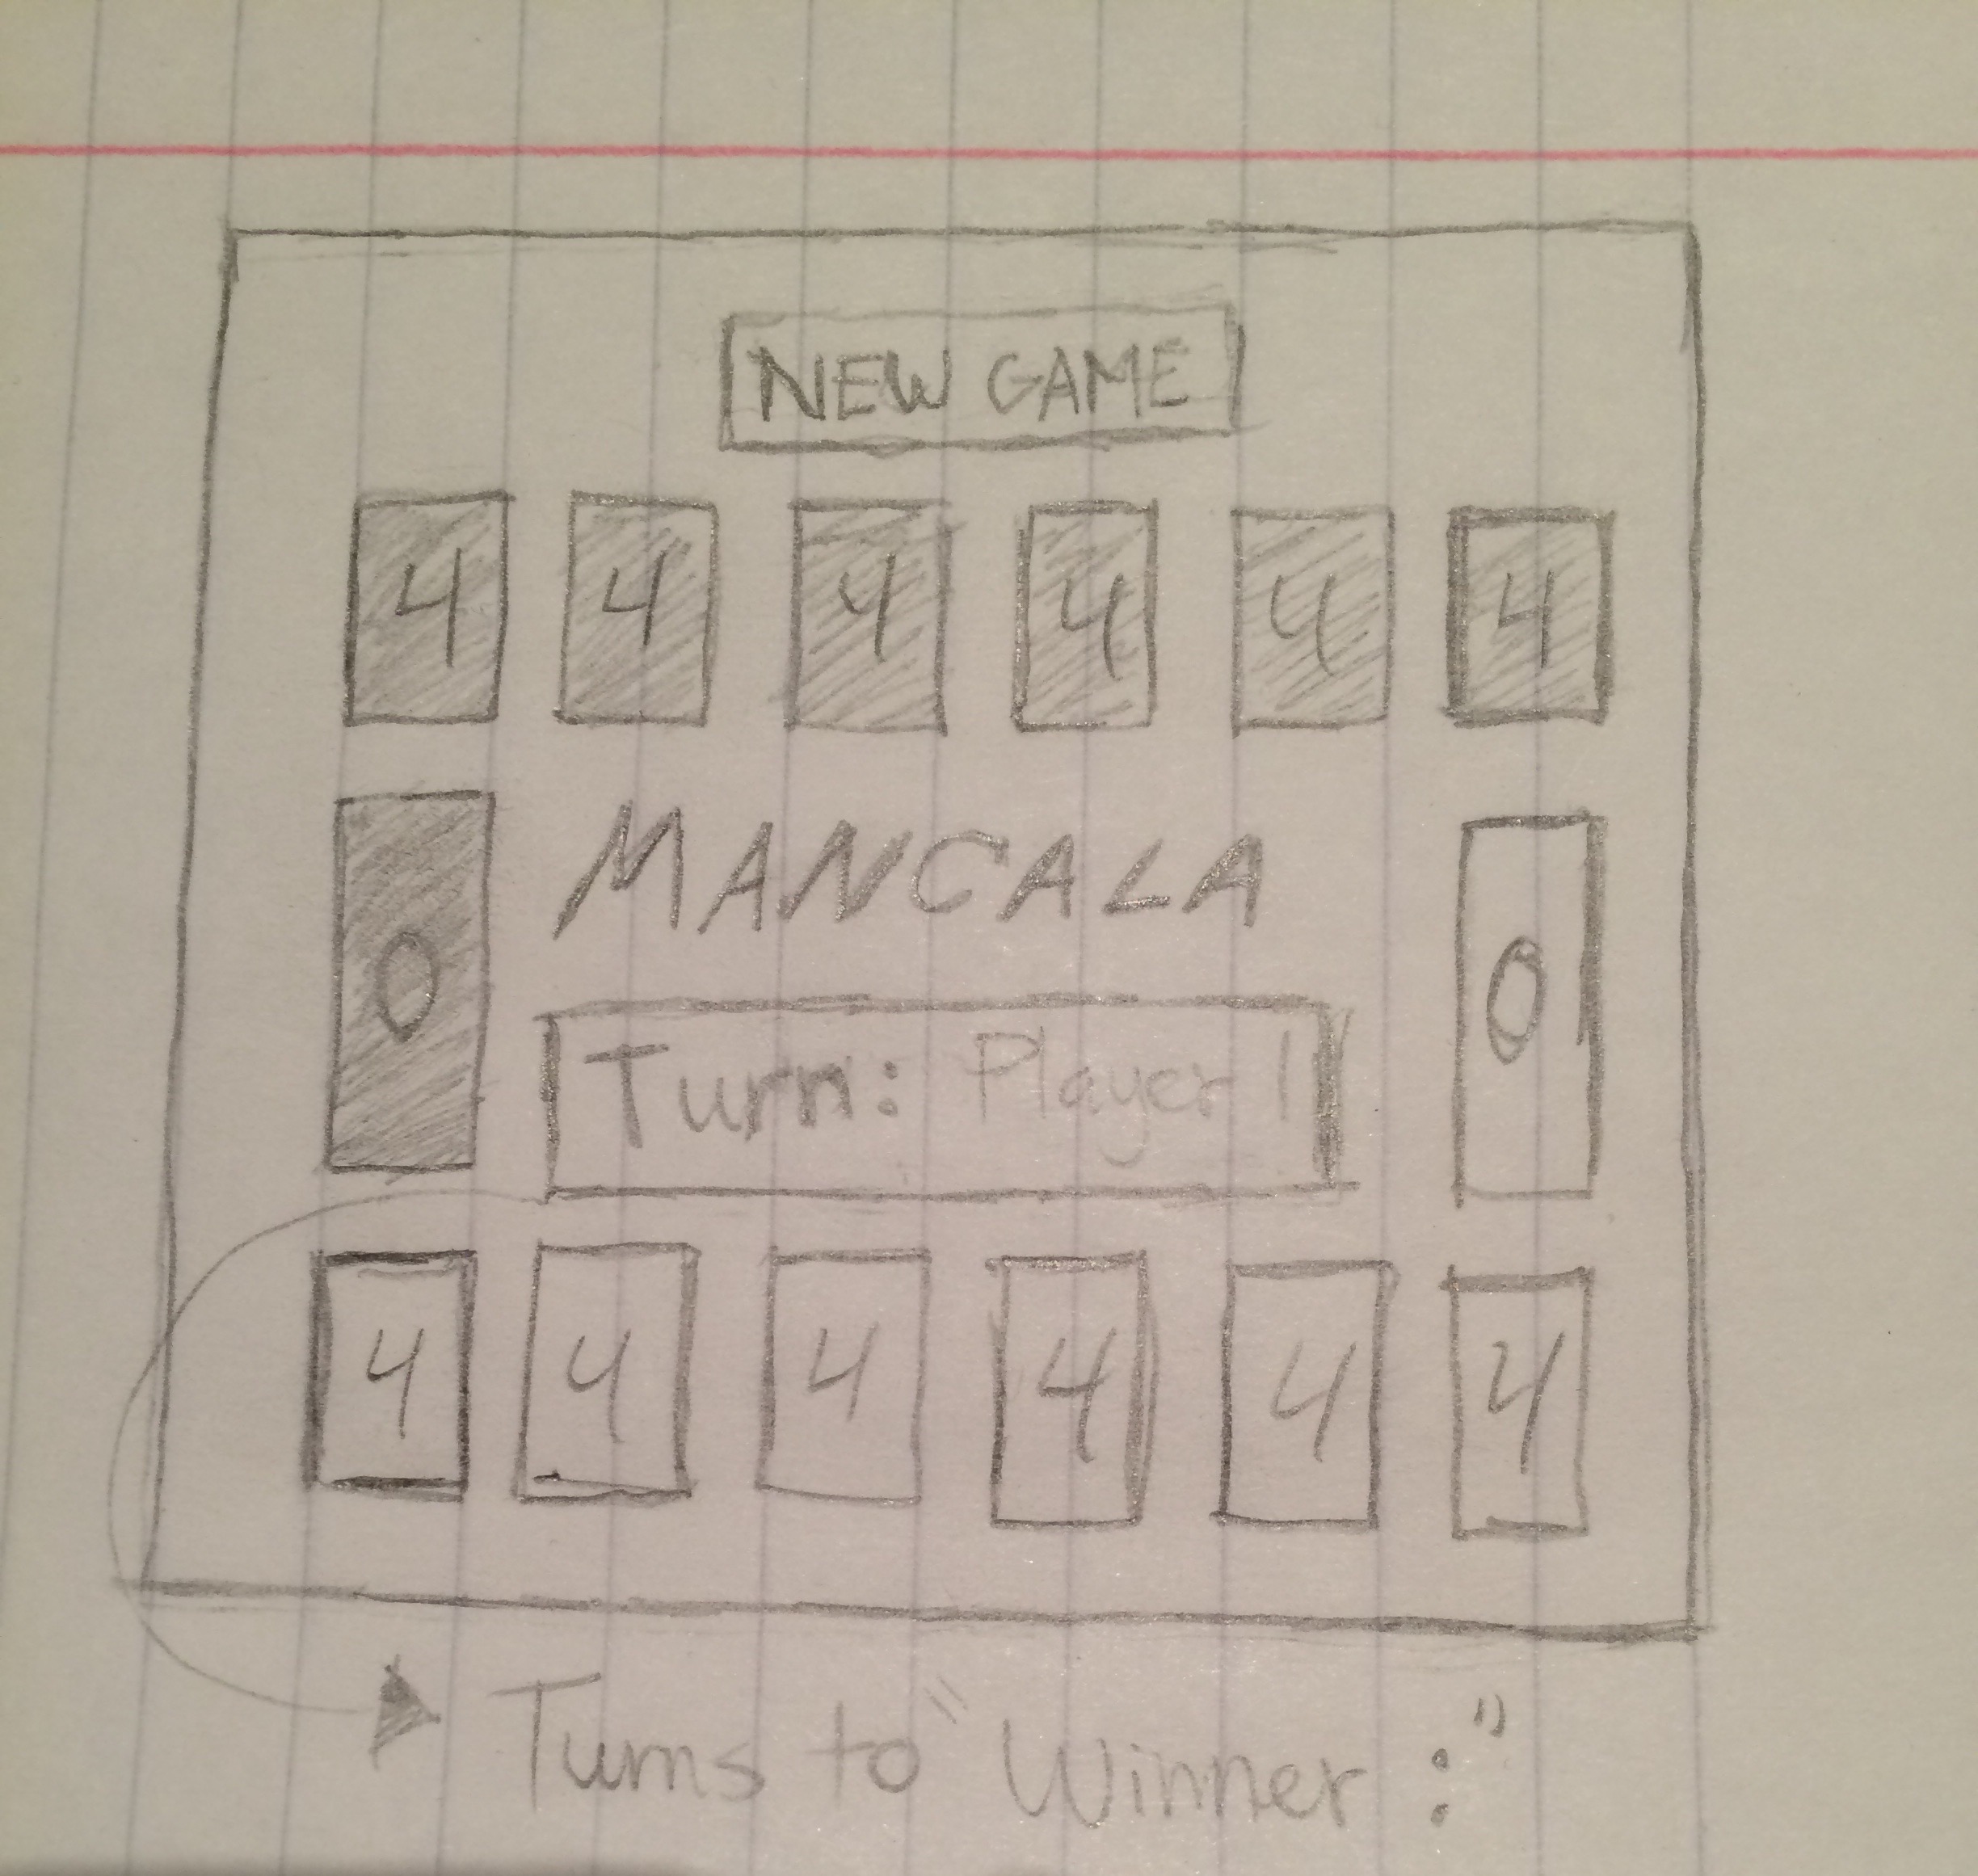 NEW GAME
4 4 4 4 4 4
MANCALA
0 0
Turn: Player 1
4 4 4 4 4 4
Turns to "Winner :"